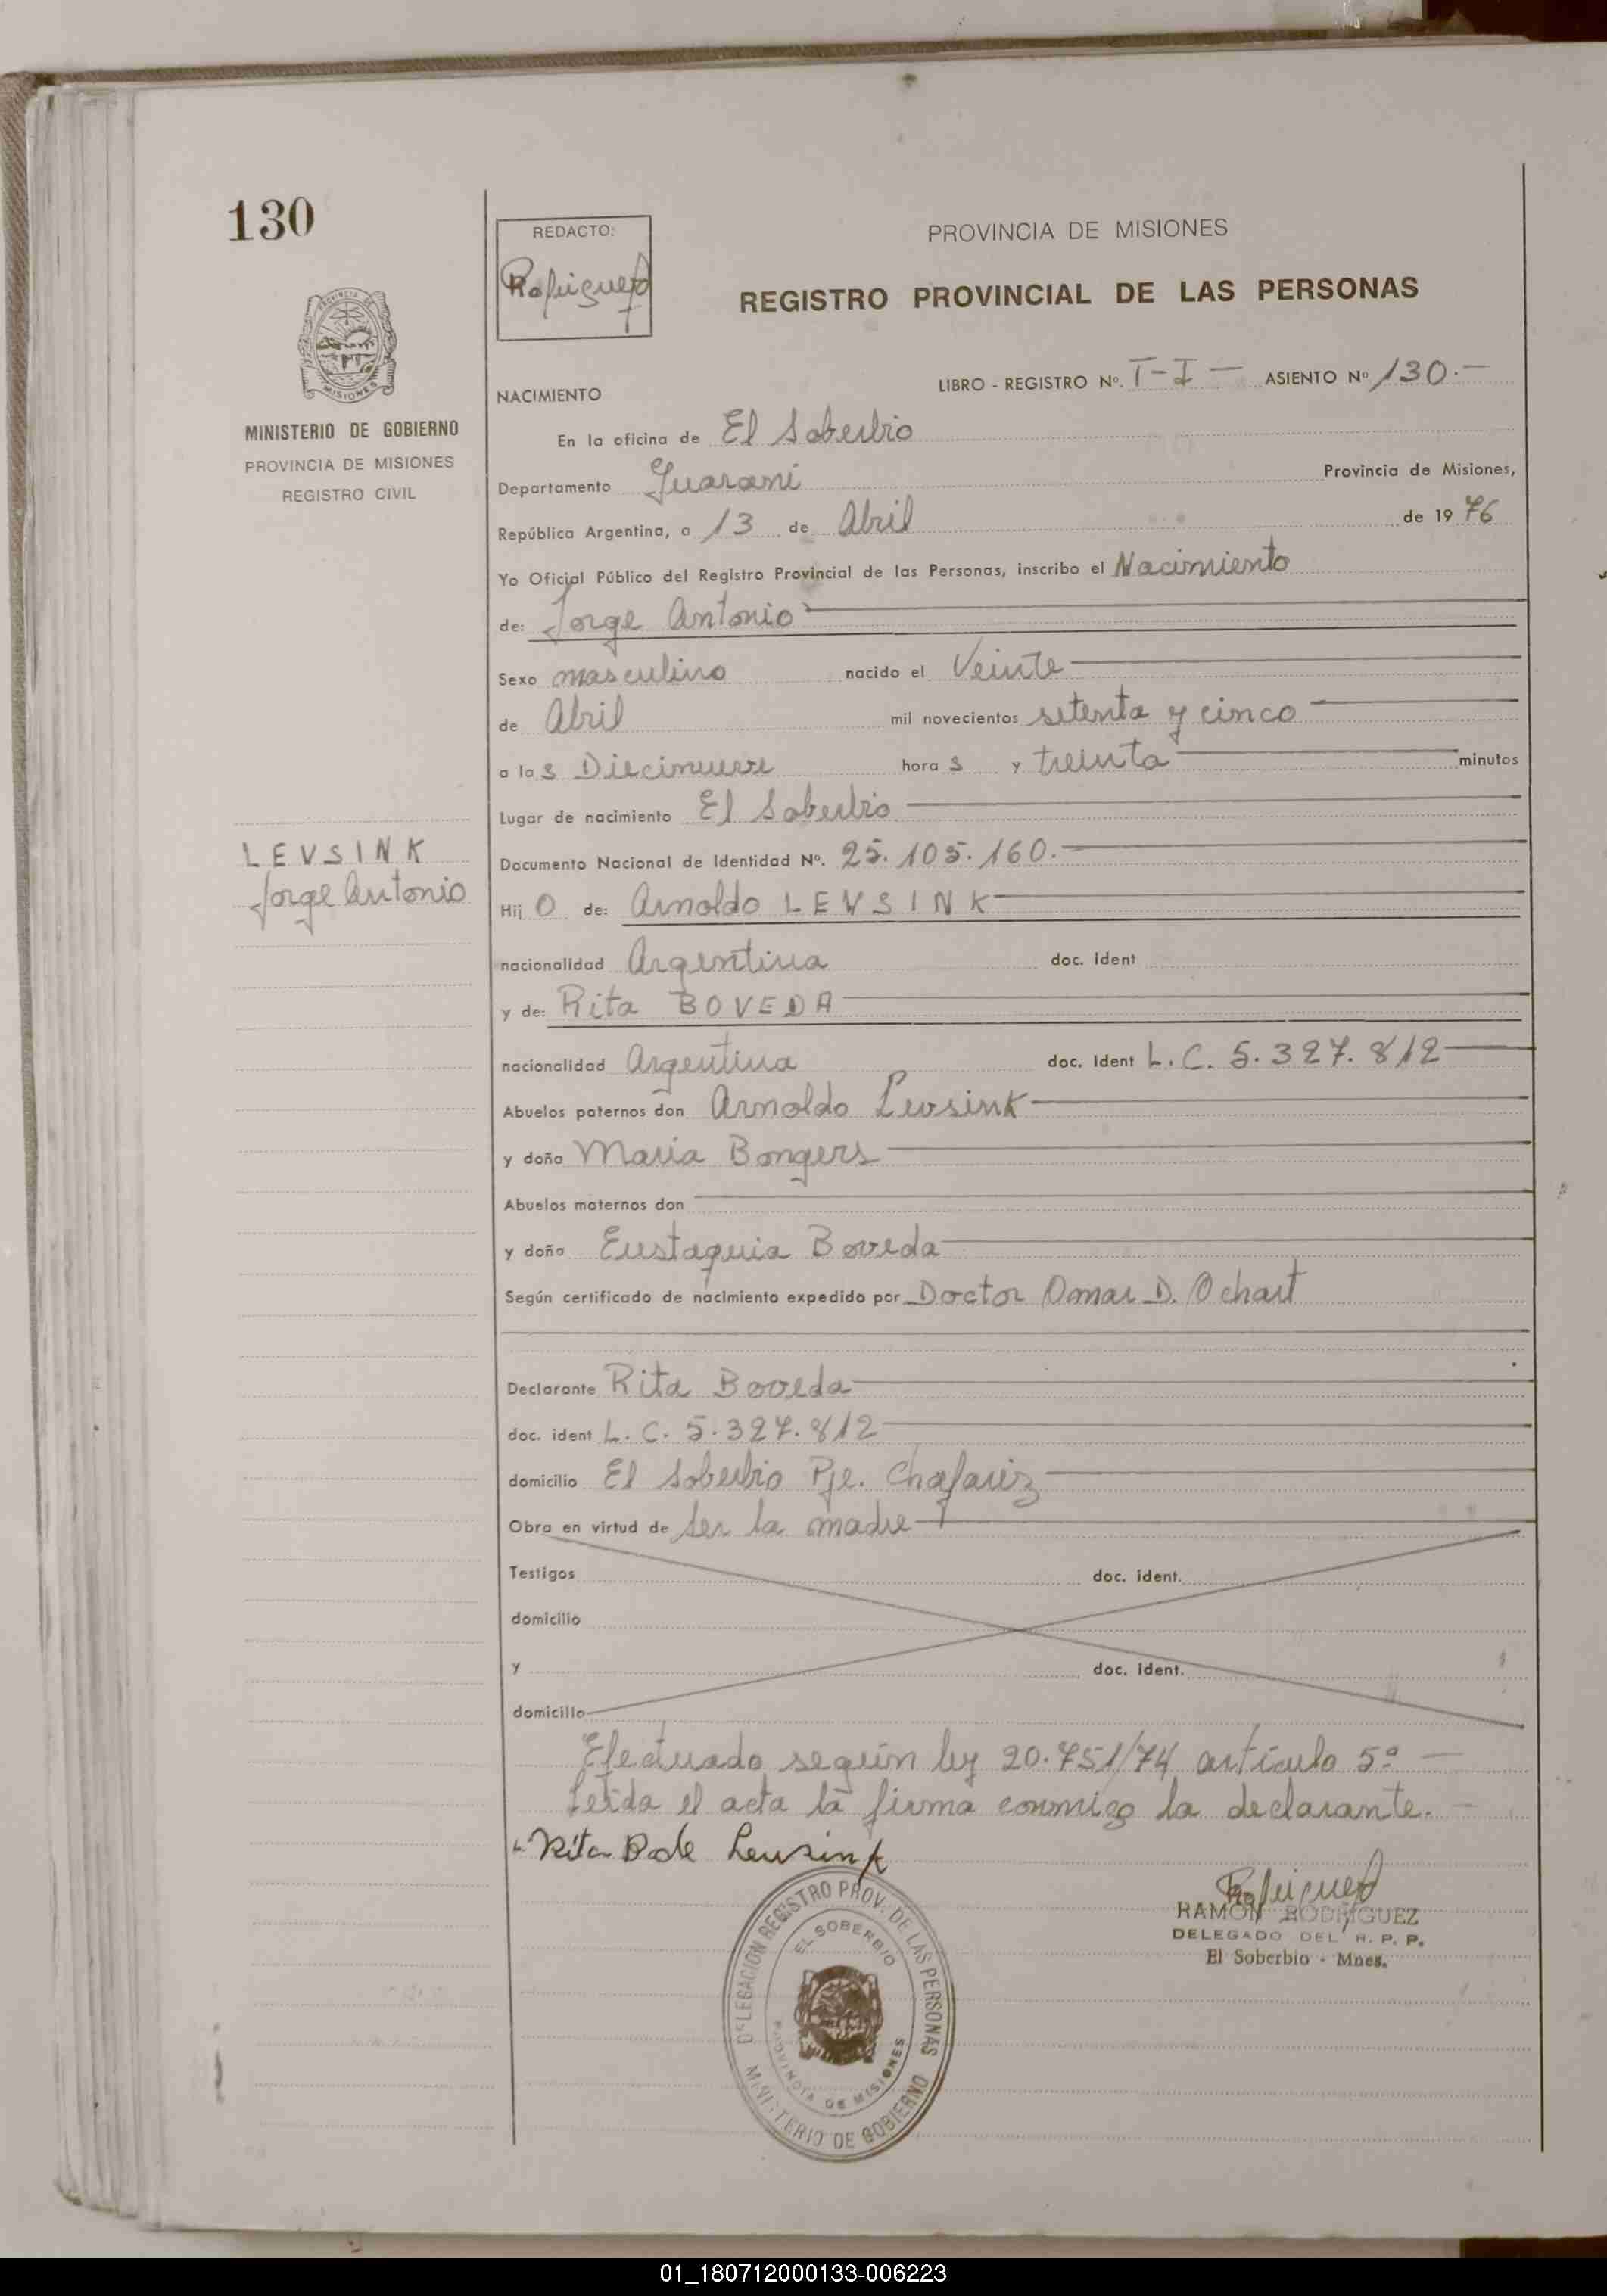 130
REDACTO:
PROVINCIA DE MISIONES
REGISTRO PROVINCIAL DE LAS PERSONAS
PROVINCIA DE
MISIONES
MINISTERIO DE GOBIERNO
PROVINCIA DE MISIONES
REGISTRO CIVIL
LIBRO - REGISTRO Nº. T-I - ASIENTO Nº 130.-
NACIMIENTO
En la oficina de El Soberbio
Departamento Guarani Provincia de Misiones,
República Argentina, a 13 de Abril de 1976
Yo Oficial Público del Registro Provincial de las Personas, inscribo el Nacimiento
de: Jorge Antonio
Sexo masculino nacido el Veinte
de Abril mil novecientos setenta y cinco
a las Diecinueve horas y treinta minutos
Lugar de nacimiento El Soberbio
LEVSINK
Jorge Antonio
Documento Nacional de Identidad Nº. 25.105.160.
Hijo de: Arnoldo LEVSINK
nacionalidad Argentina doc. Ident
y de: Rita BOVEDA
nacionalidad Argentina doc. Ident L.C. 5.327.812
Abuelos paternos don Arnoldo Levsink
y doña Maria Bongers
Abuelos maternos don
y doña Eustaquia Boveda
Según certificado de nacimiento expedido por Doctor Omar D. Ochart
Declarante Rita Boveda
doc. ident L.C. 5.327.812
domicilio El Soberbio Pje. Chafariz
Obra en virtud de ser la madre
Testigos doc. ident.
domicilio
y doc. ident.
domicilio
Efectuado según ley 20.751/74 artículo 5º -
Leida el acta la firma conmigo la declarante. -
Rita B de Leusink
RAMON RODRIGUEZ
DELEGADO DEL R. P. P.
El Soberbio - Mnes.
DELEGACION REGISTRO PROV. DE LAS PERSONAS
EL SOBERBIO
PROVINCIA DE MISIONES
MINISTERIO DE GOBIERNO
01_180712000133-006223